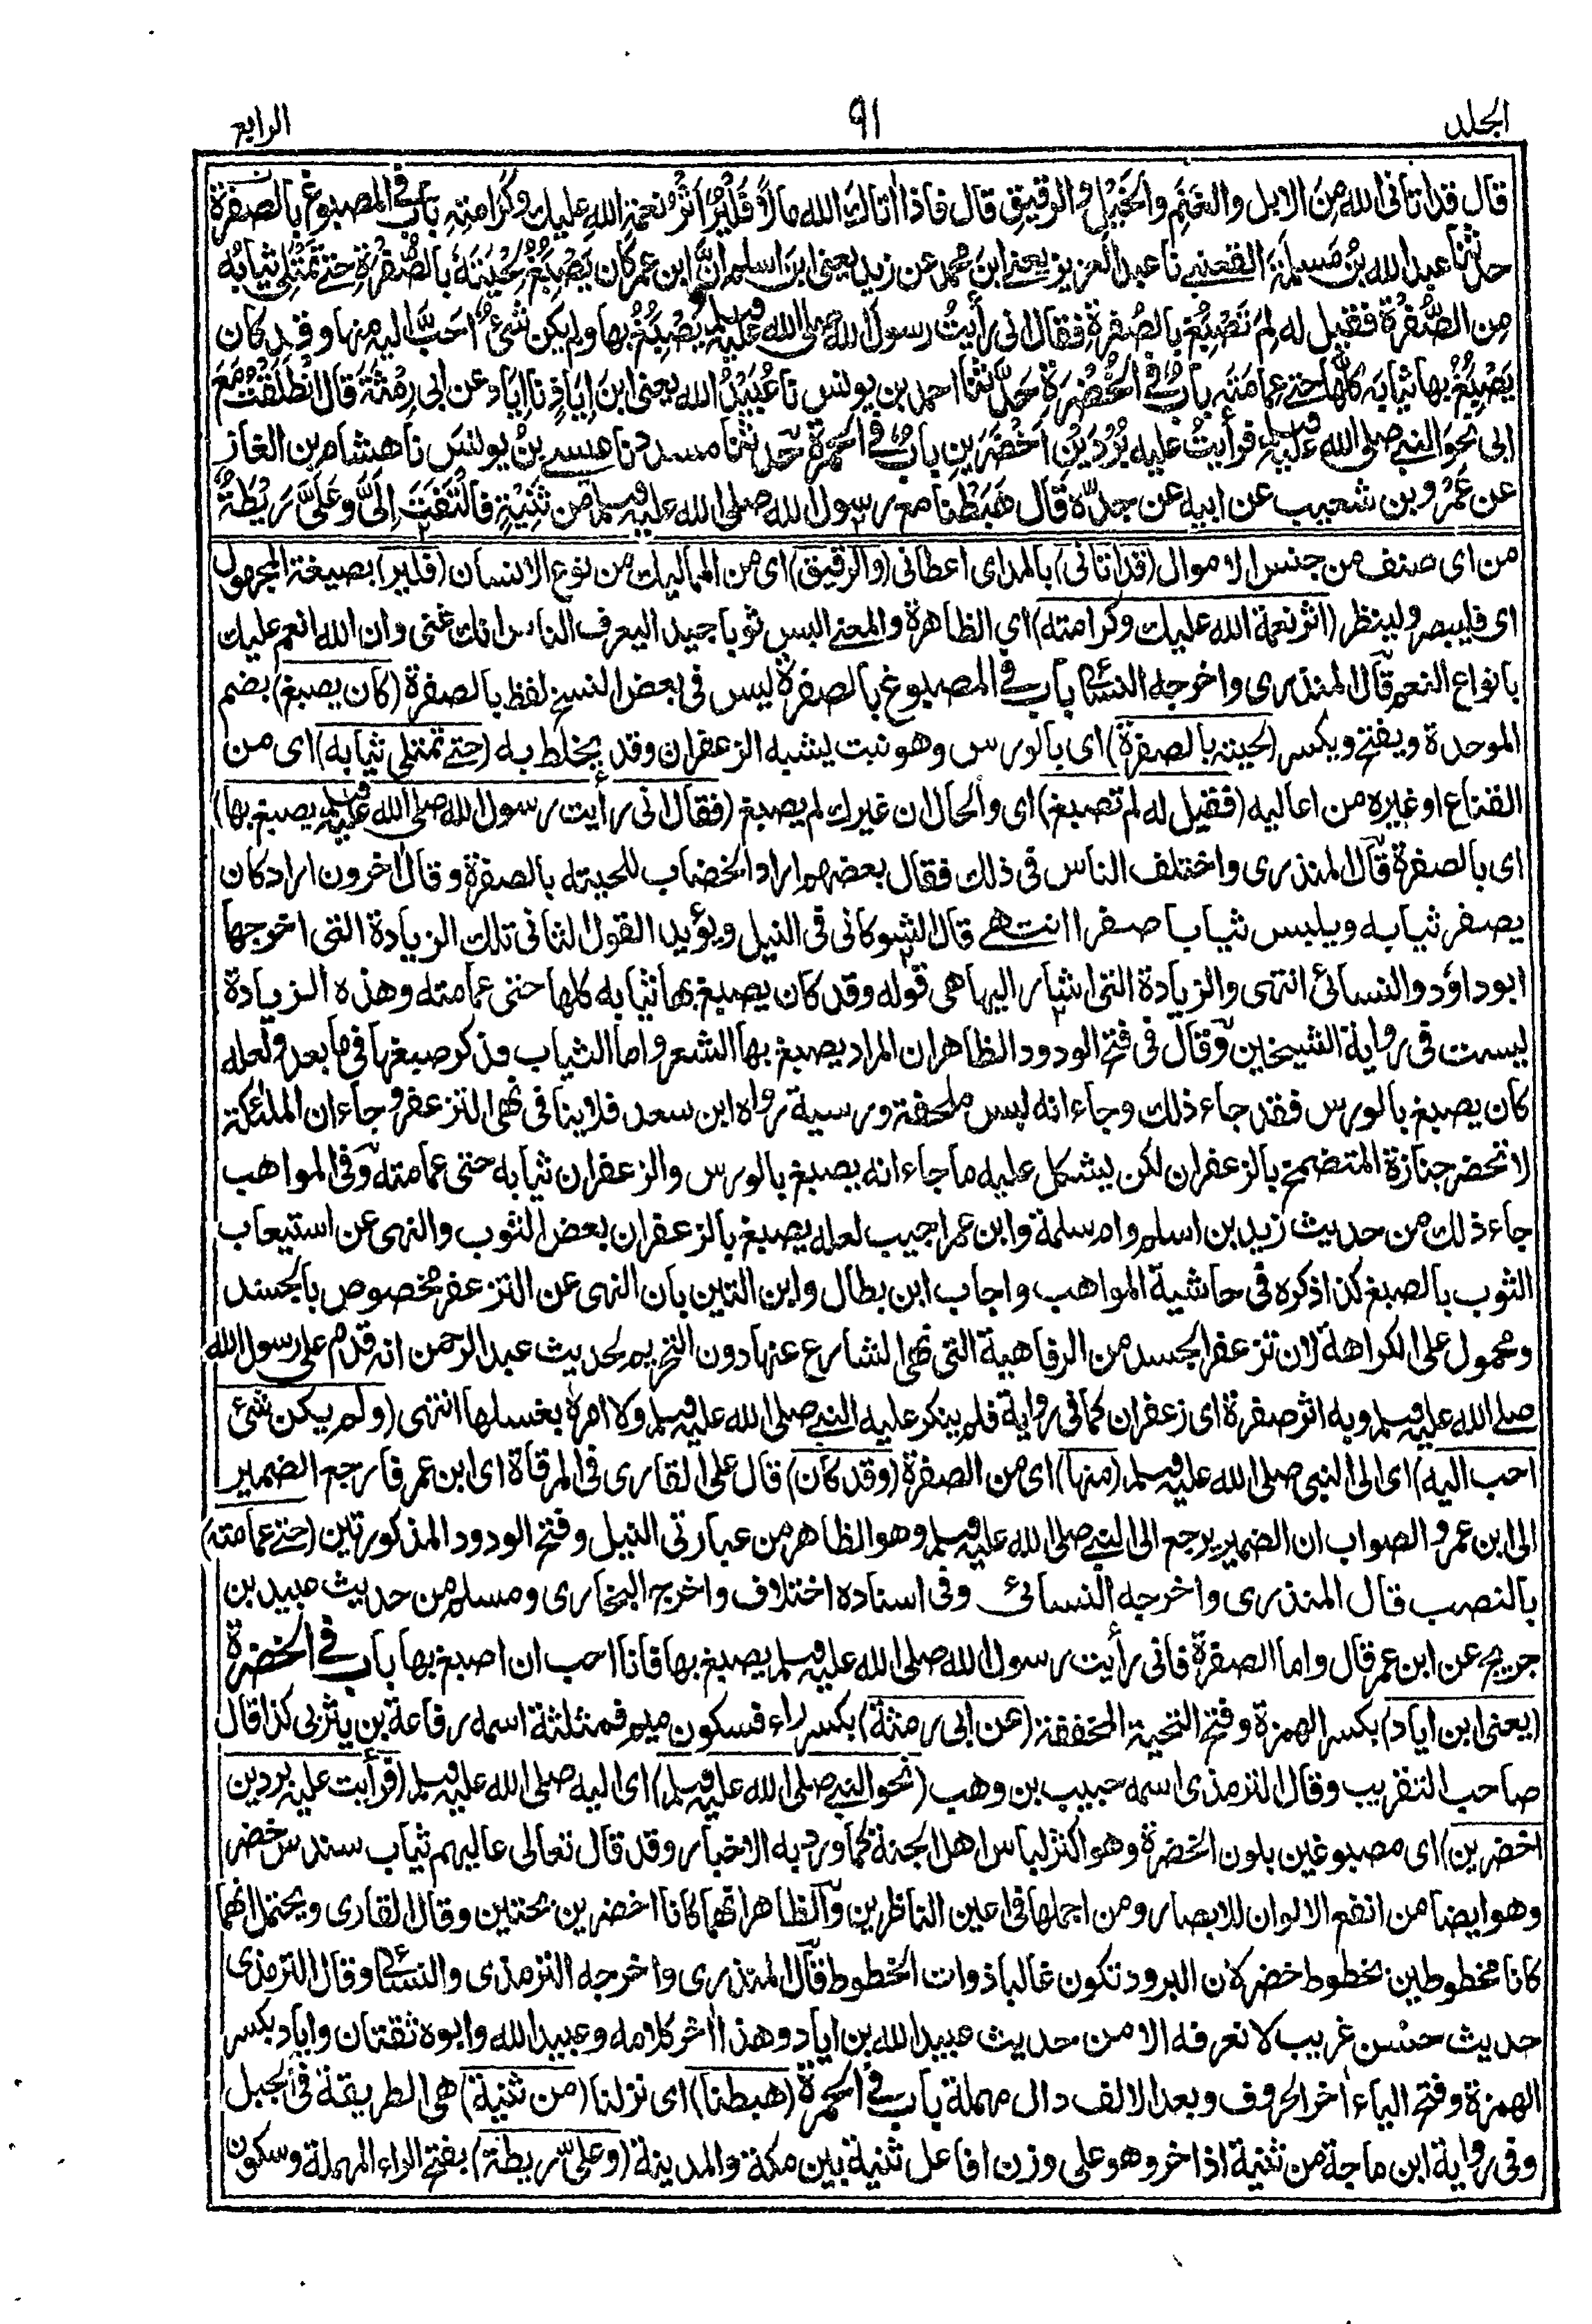 الجلد ٩١ الرابع
قال قد اتانى الله مِنَ الابل والغَنَمِ والخَيْلِ والرقيقِ قال فاذا اٰتاكَ الله مالًا فَلْيُرَ اَثَرُ نعمةِ اللهِ عليك وكَرَامتِهِ بابٌ فى المصبوغ بالصفرة
حدثنا عبد الله بنُ مَسلَمَةَ القعنبى نا عبد العزيز يعنى ابنَ محمد عن زيد يعنى ابنَ اسلم انَّ ابن عمر كان يَصْبِغُ لِحْيَتَهُ بالصُّفرَةِ حتى تَمْتَلِئَ ثيابُه
مِن الصُّفرَةِ فقيل له لِمَ تَصْبُغُ بالصُفرةِ فقال انى رأيتُ رسولَ الله صلى الله عليه وسلم يَصْبِغُ بها ولم يكن شَىْءٌ اَحَبَّ اليه منها وقد كان
يَصْبِغُ بها ثيابَه كلَّها حتى عِمامَتَه بابٌ فى الخُضْرَةِ حدّثنا احمد بن يونس نا عُبَيْدُ الله يعنى ابنَ اِيَادٍ نا اِيَاد عن ابى رِمْثَةَ قال انْطَلَقْتُ مَعَ
ابى نحوَ النبى صلى الله عليه وسلم فرأيتُ عليه بُرْدَيْن اَخْضَرَينِ بابٌ فى الحمرة حدثنا مسدد نا عيسى بنُ يونسَ نا هشام بن الغاز
عن عَمْرِو بن شعيب عن ابيه عن جدّه قال هَبَطْنا مع رسول الله صلى الله عليه وسلم من ثَنِيّةٍ فالْتَفَتَ اِلَىَّ وعَلَىَّ رَيْطَةٌ
من اى صنف من جنس الاموال (قد اتانى) بالمد اى اعطانى (والرقيق) اى من المماليك من نوع الانسان (فلير) بصيغة المجهول
اى فليبصر ولينظر (اثر نعمة الله عليك وكرامته) اى الظاهرة والمعنى البس ثوبا جيدا ليعرف الناس انك غنى وان الله انعم عليك
بانواع النعم قال المنذرى واخرجه النسائى باب فى المصبوغ بالصفرة ليس فى بعض النسخ لفظ بالصفرة (كان يصبغ) بضم
الموحدة ويفتح ويكسر (لحيته بالصفرة) اى بالورس وهو نبت يشبه الزعفران وقد يخلط به (حتى تمتلى ثيابه) اى من
القناع اوغيره من اعاليه (فقيل له لم تصبغ) اى والحال ان غيرك لم يصبغ (فقال انى رأيت رسول الله صلى الله عليه وسلم يصبغ بها)
اى بالصفرة قال المنذرى واختلف الناس فى ذلك فقال بعضهم اراد الخضاب للحيته بالصفرة وقال اٰخرون اراد كان
يصفر ثيابه ويلبس ثيابا صفرا انتهى قال الشوكانى فى النيل ويؤيد القول الثانى تلك الزيادة التى اخرجها
ابوداؤد والنسائى انتهى والزيادة التى اشار اليها هى قوله وقد كان يصبغ بها ثيابه كلها حتى عمامته وهذه الزيادة
ليست فى رواية الشيخين وقال فى فتح الودود الظاهر ان المراد يصبغ بها الشعر واما الثياب فذكر صبغها فى ما بعد ولعله
كان يصبغ بالورس فقد جاء ذلك وجاء انه لبس ملحفة ورسية رواه ابن سعد فلا ينافى نهى التزعفر وجاء ان الملٰئكة
لا تحضر جنازة المتضمخ بالزعفران لكن يشكل عليه ما جاء انه يصبغ بالورس والزعفران ثيابه حتى عمامته وفى المواهب
جاء ذلك من حديث زيد بن اسلم وام سلمة وابن عمر اجيب لعله يصبغ بالزعفران بعض الثوب والنهى عن استيعاب
الثوب بالصبغ كذا ذكره فى حاشية المواهب واجاب ابن بطال وابن التين بان النهى عن التزعفر مخصوص بالجسد
ومحمول على الكراهة لان تزعفر الجسد من الرفاهية التى نهى الشارع عنها دون التحريم لحديث عبد الرحمن انه قدم على رسول الله
صلى الله عليه وسلم وبه اثر صفرة اى زعفران كما فى رواية فلم ينكر عليه النبى صلى الله عليه وسلم ولا امره بغسلها انتهى (ولم يكن شئ
احب اليه) اى الى النبى صلى الله عليه وسلم (منها) اى من الصفرة (وقد كان) قال على القارى فى المرقاة اى ابن عمر فارجع الضمير
الى ابن عمر والصواب ان الضمير يرجع الى النبى صلى الله عليه وسلم وهو الظاهر من عبارتى النيل وفتح الودود المذكورتين (حتى عمامته)
بالنصب قال المنذرى واخرجه النسائى وفى اسناده اختلاف واخرج البخارى ومسلم من حديث عبيد بن
جريج عن ابن عمر قال واما الصفرة فانى رأيت رسول الله صلى الله عليه وسلم يصبغ بها فانا احب ان اصبغ بها باب فى الخضرة
(يعنى ابن اياد) بكسر الهمزة وفتح التحية المخففة (عن ابى رمثة) بكسر راء فسكون ميم فمثلثة اسمه رفاعة بن يثربى كذا قال
صاحب التقريب وقال الترمذى اسمه حبيب بن وهب (نحو النبى صلى الله عليه وسلم) اى اليه صلى الله عليه وسلم (فرأيت عليه بردين
اخضرين) اى مصبوغين بلون الخضرة وهو اكثر لباس اهل الجنة كما ورد به الاخبار وقد قال تعالى عاليهم ثياب سندس خضر
وهو ايضا من انفع الالوان للابصار ومن اجملها فى اعين الناظرين والظاهر انهما كانا اخضرين بحتين وقال القارى ويحتمل انهما
كانا مخطوطين بخطوط خضر لان البرود تكون غالبا ذوات الخطوط قال المنذرى واخرجه الترمذى والنسائى وقال الترمذى
حديث حسن غريب لا نعرفه الا من حديث عبيد الله بن اياد وهذا اٰخر كلامه وعبيد الله وابوه ثقتان واياد بكسر
الهمزة وفتح الياء اٰخر الحروف وبعد الالف دال مهملة باب فى الحمرة (هبطنا) اى نزلنا (من ثنية) هى الطريقة فى الجبل
وفى رواية ابن ماجة من ثنية اذاخر وهو على وزن افاعل ثنية بين مكة والمدينة (وعلىّ ريطة) بفتح الراء المهملة وسكون